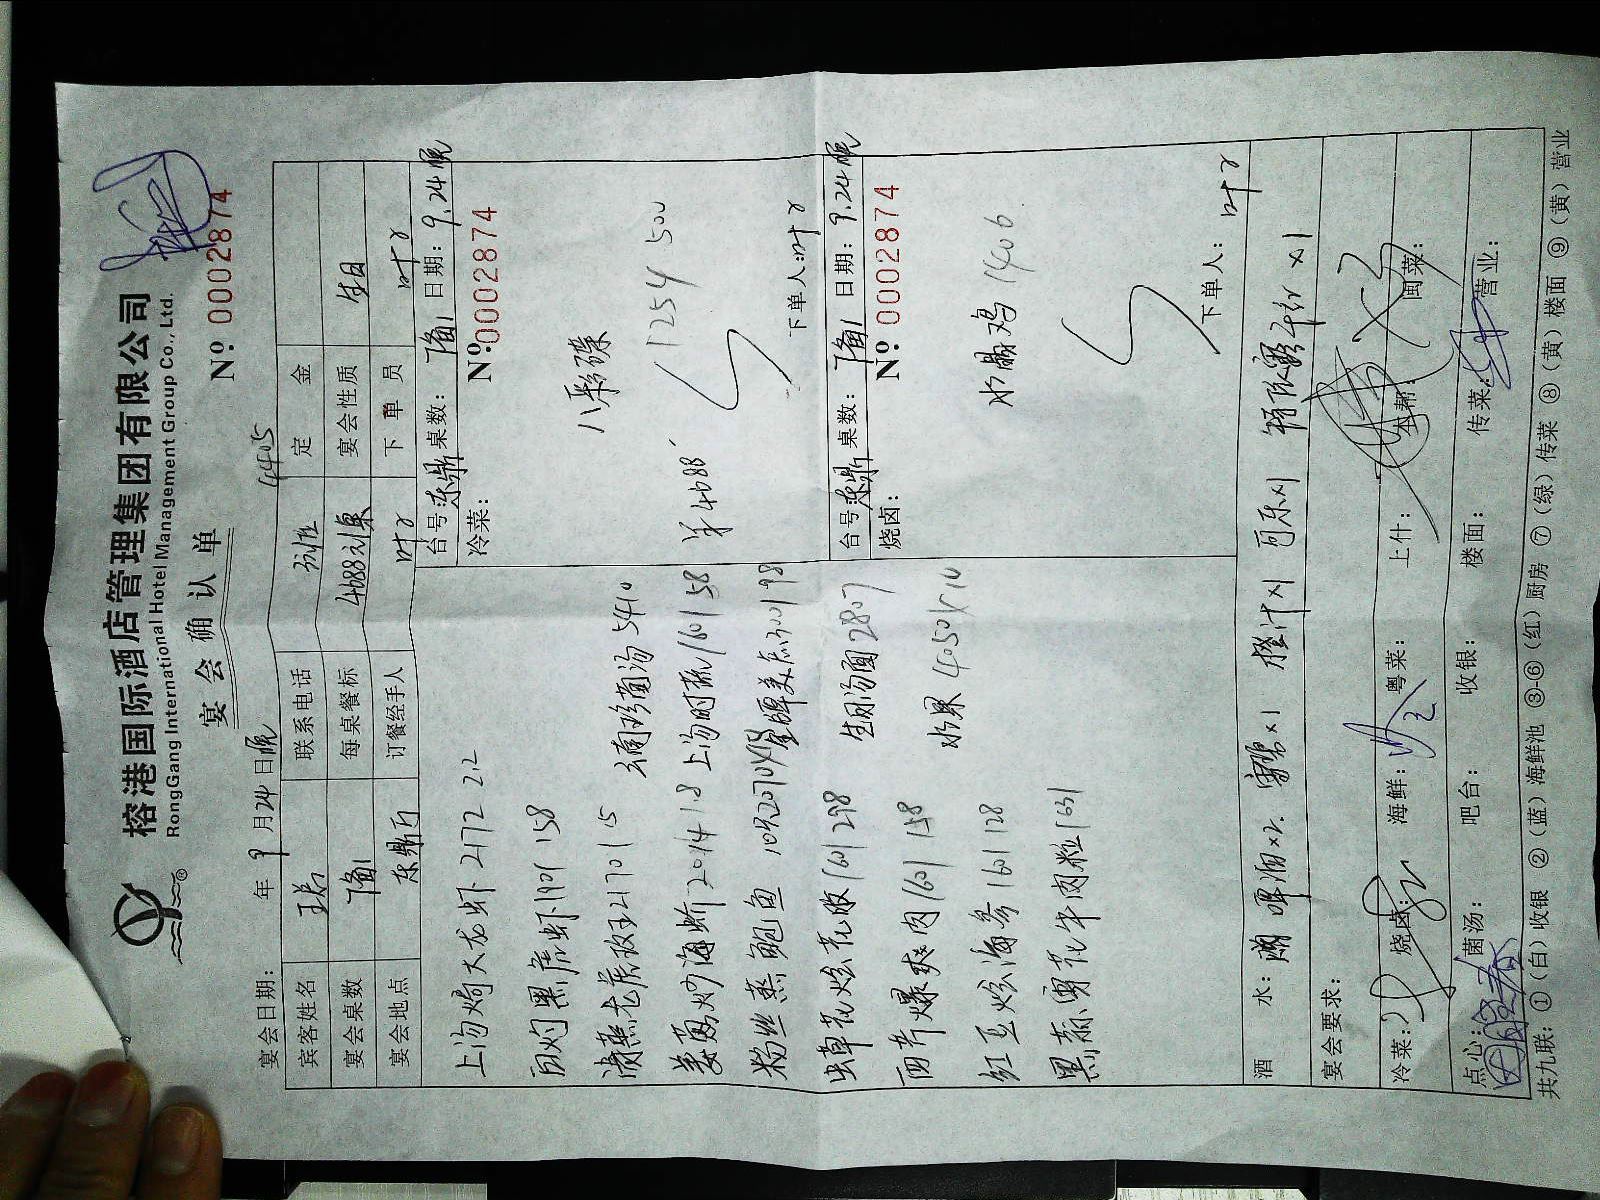 榕港国际酒店管理集团有限公司
RongGang International Hotel Management Group Co., Ltd.
宴会确认单
№ 0002874
宴会日期： 年 9 月 24 日晚 4405
宾客姓名 联系电话 定金
宴会桌数 1 每桌餐标 4688 宴会性质 生日
宴会地点 东鼎 订餐经手人 叶 下单员 叶
台号：东鼎 桌数： 1 日期：9.24晚
冷菜： №:0002874
八彩碟 1254 500
半4688
下单人：叶
台号：东鼎 桌数： 1 日期：9.24晚
烧卤： № 0002874
水晶鸡 1406
下单人：叶
上汤焗大龙虾 2172 2.2
白灼黑虎虾 1901 158
清蒸老虎斑 2170 1.5
姜葱炒海蛎 2014 1.8
粉丝蒸鲍鱼
虫草花炊花收 1601 298
西芹爆爽肉 1601 158
红豆炊海参 1601 128
黑蒜雪花牛肉粒 1631
菌汤 5410
上汤时蔬 1601 58
美点 3001 98
生日汤面 2807
水果 4050×10
酒水： 啤酒×2. 雪碧×1 橙汁×1 可乐×1 ×1
宴会要求：
冷菜： 烧卤： 海鲜： 粤菜： 上什： 本帮： 闽菜：
点心： 菌汤： 吧台： 收银： 楼面： 传菜： 营业：
共九联：①（白）收银 ②（蓝）海鲜池 ③-⑥（红）厨房 ⑦（绿）传菜 ⑧（黄）楼面 ⑨（黄）营业